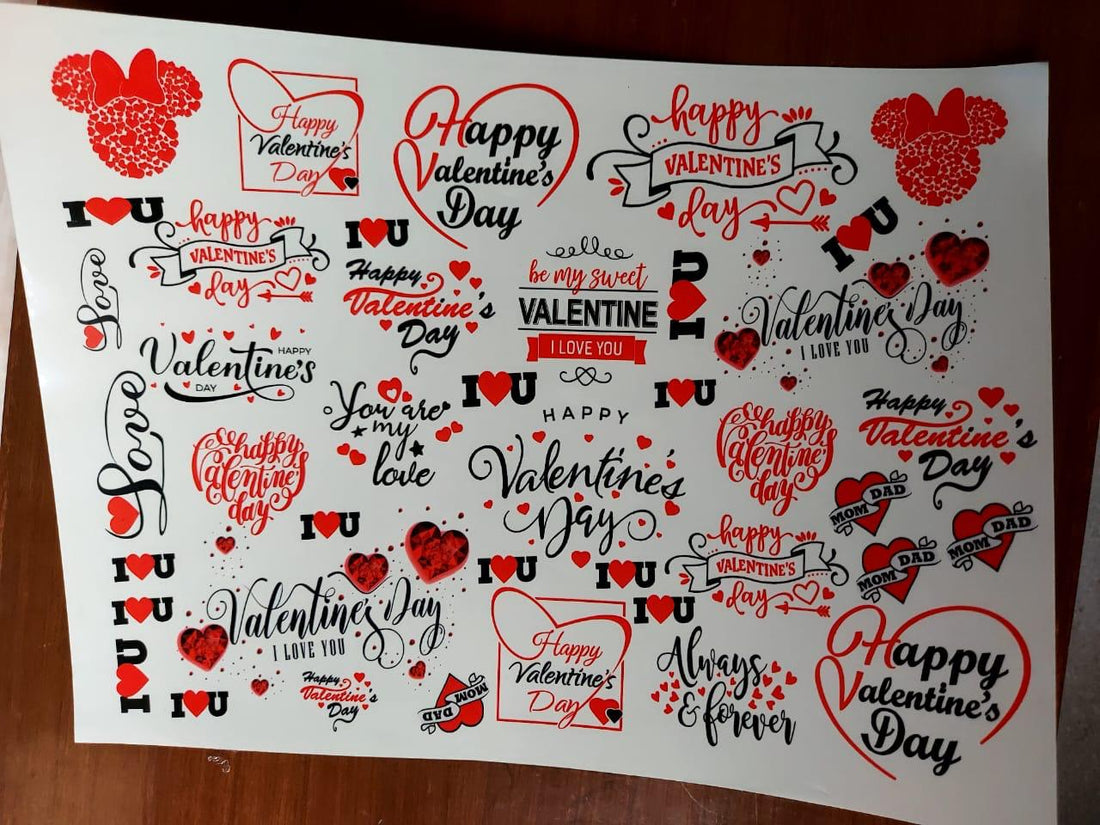 Happy
Valentine's
Day
Happy
Valentine's
Day
happy
VALENTINE'S
day
I U
I U
happy
VALENTINE'S
day
I U
Love
Happy
Valentine's
Day
be my sweet
VALENTINE
I LOVE YOU
I U
Valentine's Day
I LOVE YOU
Valentine's
HAPPY
DAY
You are
my
love
I U
I U
Happy
Valentine's
Day
Love
happy
Valentine's
day
HAPPY
Valentine's
Day
happy
Valentine's
day
MOM DAD
MOM DAD
MOM DAD
I U
happy
VALENTINE'S
day
I U
I U
I U
I U
I U
Valentine's Day
I LOVE YOU
I U
I U
Happy
Valentine's
Day
MOM DAD
Happy
Valentine's
Day
Always
& forever
Happy
Valentine's
Day